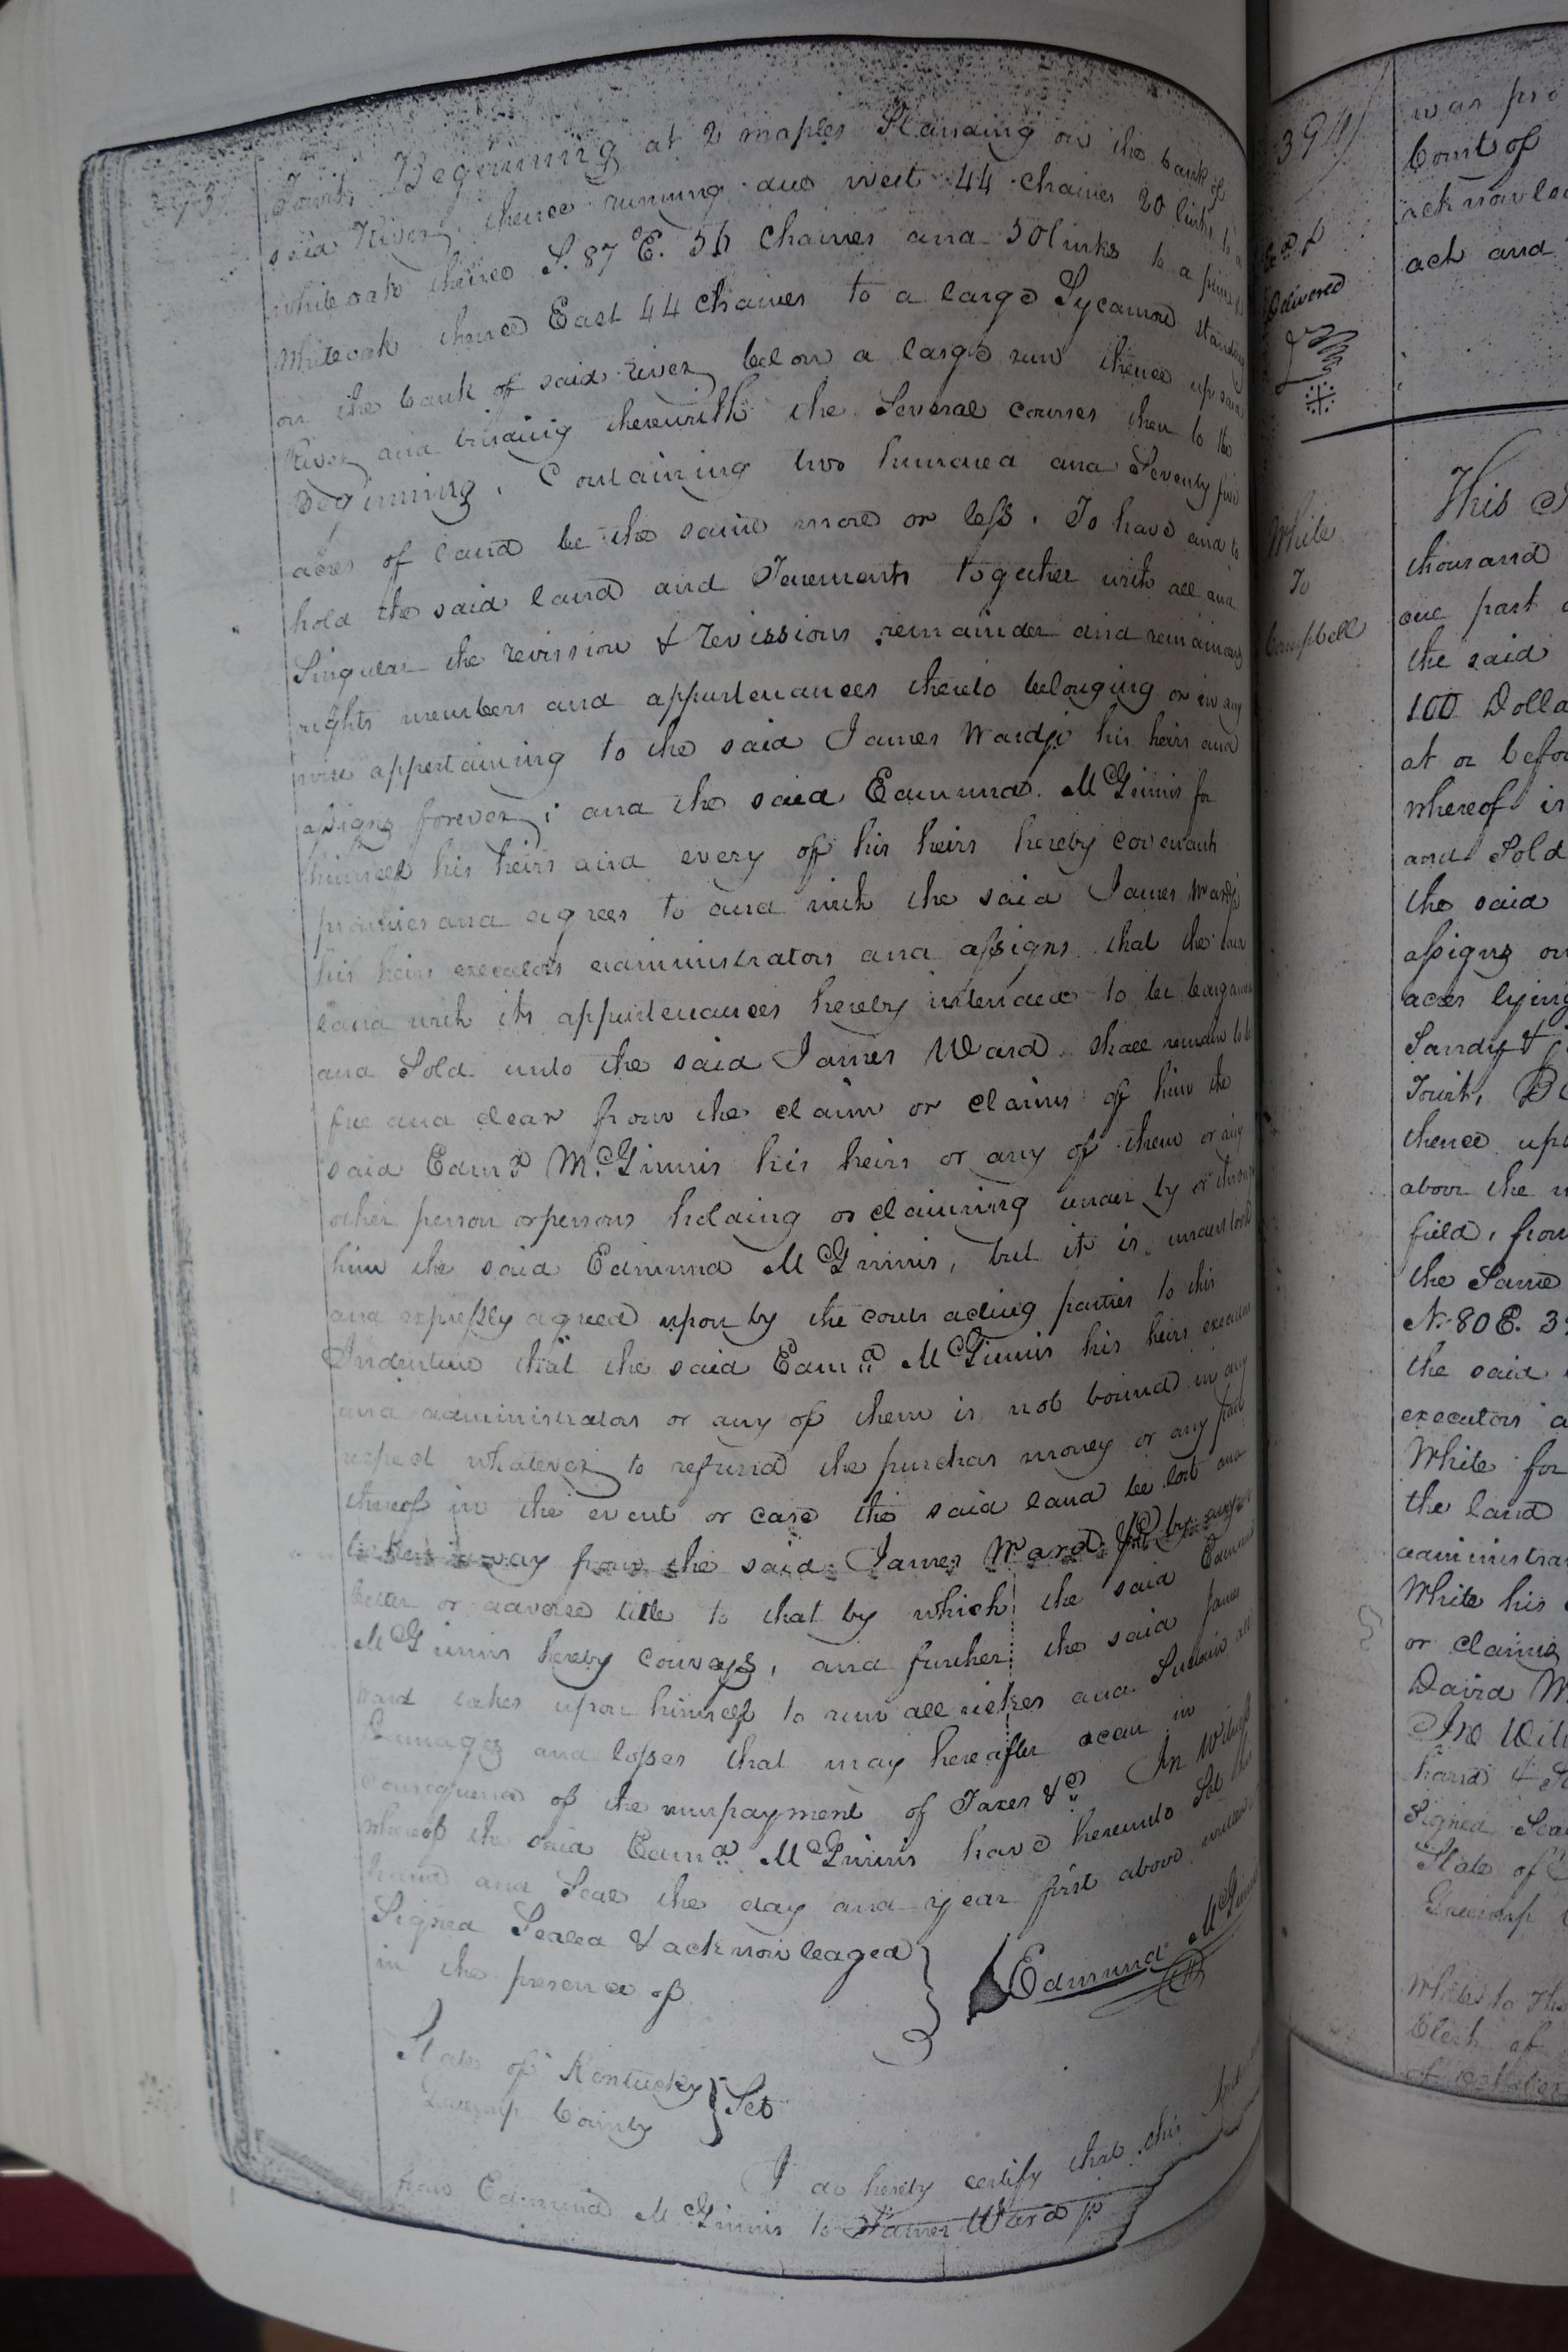 Towit, Beginning at 2 maples Standing on the bank of
said River, thence running due west 44 chaines 20 links to a
white oak thence S. 87 E. 56 Chaines and 50 links to a
White oak thence East 44 chaines to a large Sycamore standing
on the bank of said river below a large run thence up said
River and binding therewith the Several courses then to the
Beginning, Containing two hundred and Seventy five
acres of land be the same more or less. To have and to
hold the said land and Tenements together with all and
Singular the revirsion & revissions remainder and remainders
rights members and appurtenances thereto belonging or in any
wise appertaining to the said James Ward jr his heirs and
assigns forever; and the said Edmund McGinnis for
himself his heirs and every of his heirs hereby covenants
promises and agrees to and with the said James Ward jr
his heirs executors administrators and assigns that the said
land with its appurtenances hereby intended to be bargained
and Sold unto the said James Ward shall remain to be
free and clear from the claim or claims of him the
said Edmd. McGinnis his heirs or any of them or any
other person or persons holding or claiming under by or through
him the said Edmund McGinnis, but it is understood
and expressly agreed upon by the contracting parties to this
Indenture that the said Edmd. McGinnis his heirs executors
and administrators or any of them is not bound in any
respect whatever to refund the purchas money or any part
thereof in the event or case the said land be lost and
taken away from the said James Ward by any
better or adverse title to that by which the said Edmund
McGinnis hereby conveys, and further the said James
Ward takes upon himself to run all riskes and Sustain all
Damages and losses that may hereafter occur in
consequence of the nunpayment of Taxes &c. In Witness
whereof the said Edmd. McGinnis have hereunto Set his
hand and Seal the day and year first above written
Signed Sealed & acknowledged
in the presence of
Edmund McGinnis
State of Kentucky
Greenup County
} Sct
I do hereby certify that this
from Edmund McGinnis to James Ward jr
394
Delivered
White
To
Campbell
was pro
Court of
acknowled
ach and
This
thousand
one part
the said
100 Dolla
at or befor
whereof is
and Sold
the said
assigns
acres lying
Sandy &
Towit, Be
thence up
above the
field, from
the Same
N. 80 E. 3
the said
executors a
White for
the land
administra
White his
or claims
David W
In Witn
hand & Se
Signed Seal
State of
Greenup
Clerk of